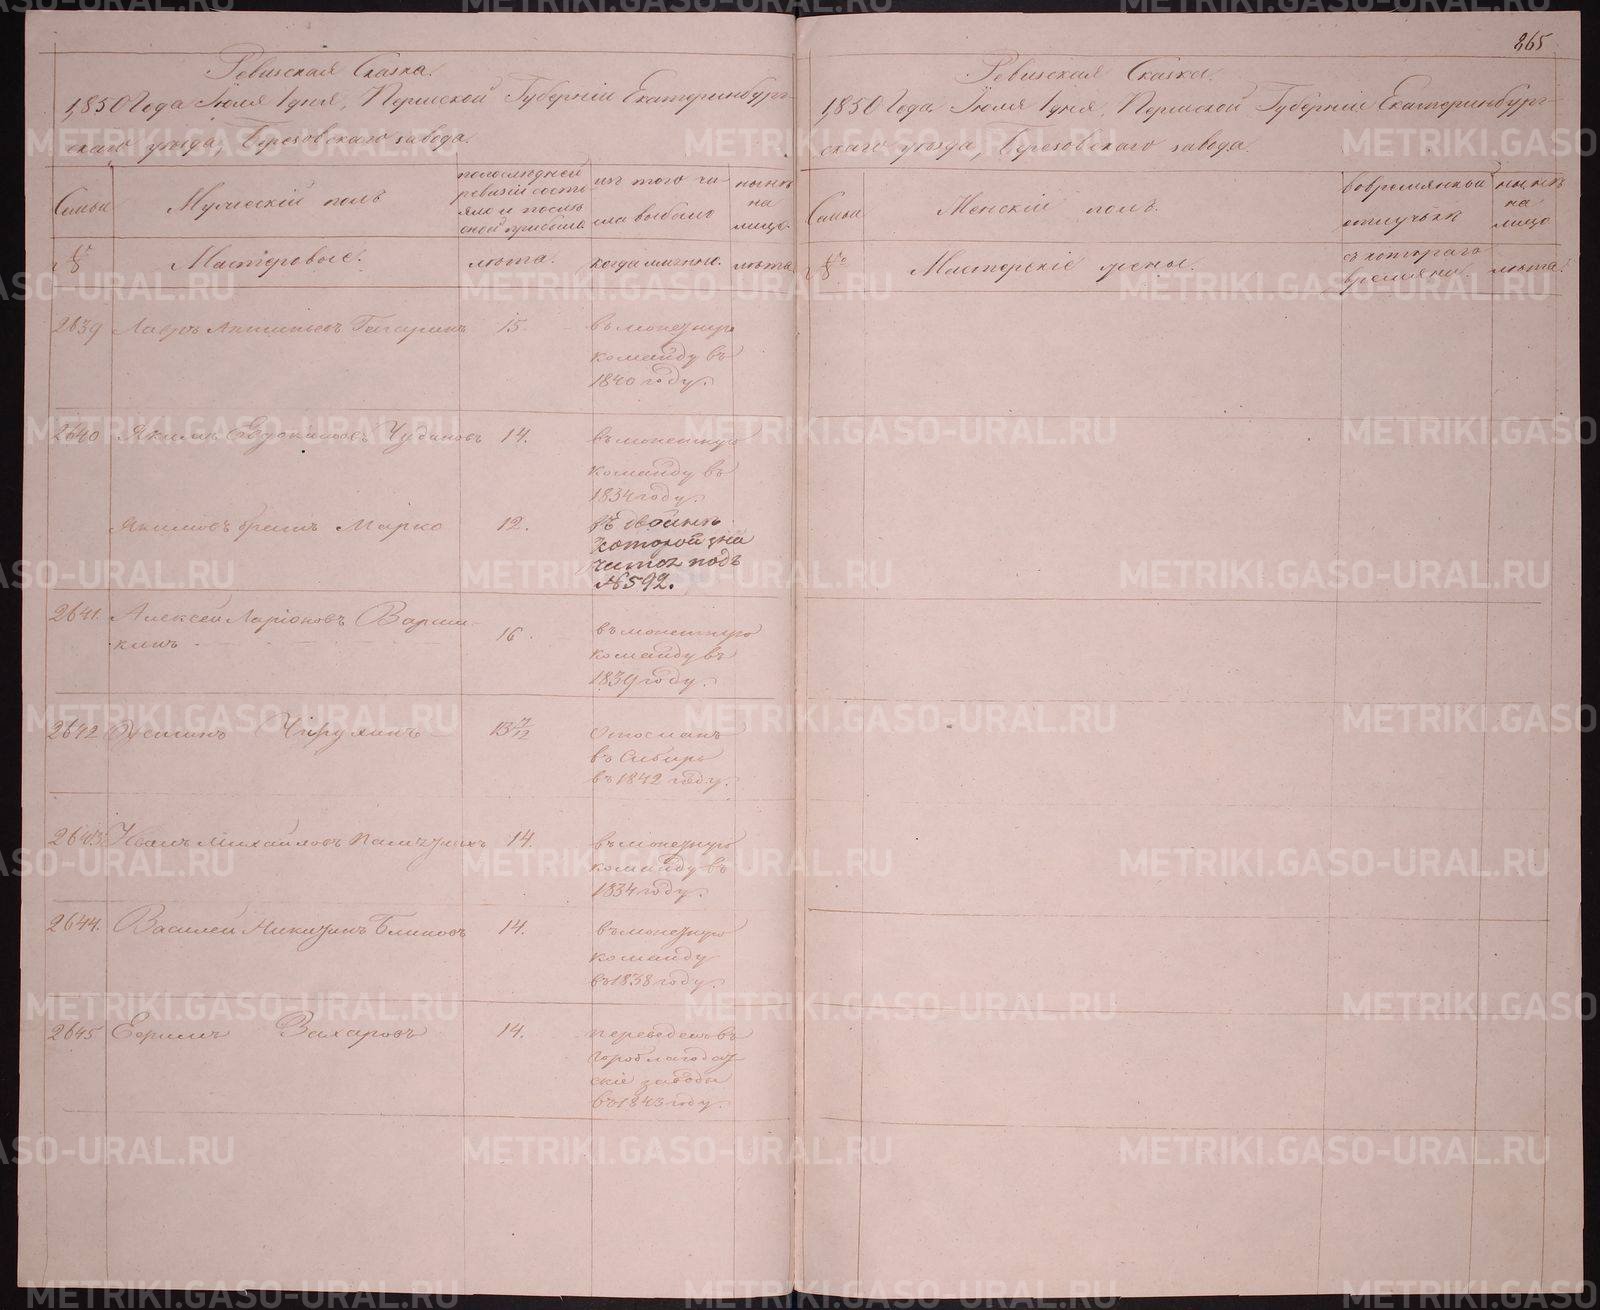 265
Ревизская Сказка.
1850 Года Іюля 1 дня, Пермской Губерніи Екатеринбург-
скаго уѣзда, Березовскаго завода.
Семьи
Мужескій полъ
по последней
ревизіи состо-
яло и послѣ
оной прибыло
изъ того чи-
сла выбыло
нынѣ
на
лицо.
№
Мастеровые.
лѣта.
когда именно.
лѣта
2639 Лавръ Гагаринъ 15.
въ монетную
команду въ
1840 году.
2640 Якимъ Евдокимовъ Чудиновъ 14.
въ монетную
команду въ
1834 году.
Якимовъ братъ Марко 12.
въ двойнѣ
которой зна
чится подъ
№ 592.
2641. Алексей Ларіоновъ Варши-
кинъ 16.
въ монетную
команду въ
1839 году.
2642 13 7/12
Отосланъ
въ Сибирь
въ 1842 году.
2643 Иванъ Михайловъ 14.
въ монетную
команду въ
1834 году.
2644. Василей Никитинъ Блиновъ 14.
въ монетную
команду
въ 1838 году.
2645 Ефимъ Захаровъ 14.
переведенъ въ
Гороблагодат-
скіе заводы
въ 1843 году.
Ревизская Сказка.
1850 Года Іюля 1 дня, Пермской Губерніи Екатеринбург-
скаго уѣзда, Березовскаго завода.
Семьи
Женскій полъ.
во временной
отлучкѣ
нынѣ
на
лицо
№
Мастерскіе жены.
съ котораго
времяни.
лѣта.
METRIKI.GASO-URAL.RU